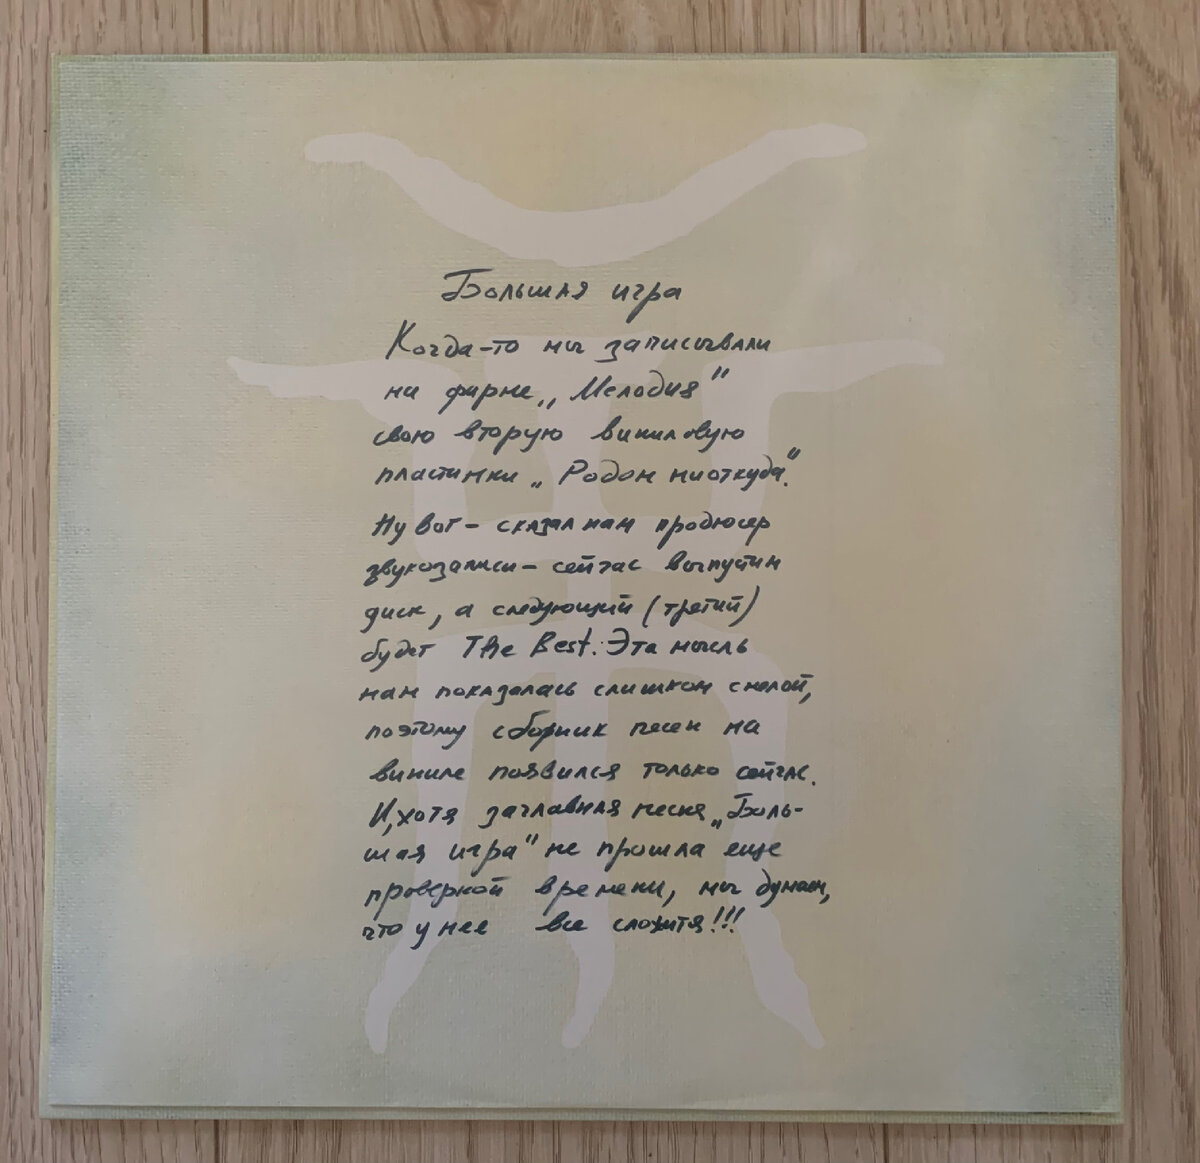 Большая игра
Когда-то мы записывали
на фирме „Мелодия"
свою вторую виниловую
пластинки „Родом ниоткуда".
Ну вот – сказал нам продюсер
звукозаписи – сейчас выпустим
диск, а следующий (третий)
будет The Best. Эта мысль
нам показалась слишком смелой,
поэтому сборник песен на
виниле появился только сейчас.
И, хотя заглавная песня „Боль-
шая игра" не прошла еще
проверкой времени, мы думаем,
что у нее все сложится!!!